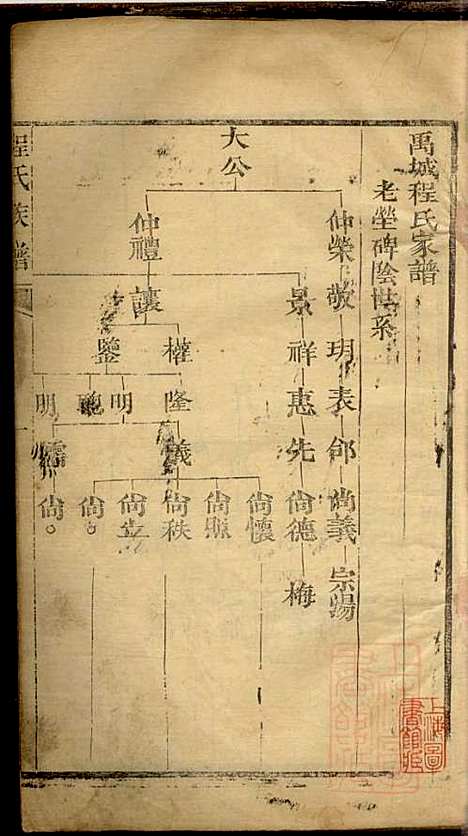 禹城程氏家譜
老塋碑陰世系
大公
仲榮 敬 玥 表 郃 尚義 宗陽
景 祥 惠 先 尚德 梅
仲禮 讓
權 隆 義
尚懷
尚賑
尚秩
尚立
尚○
鑒
明
聰
儒
尚○
明
程氏族譜
上海圖書館藏